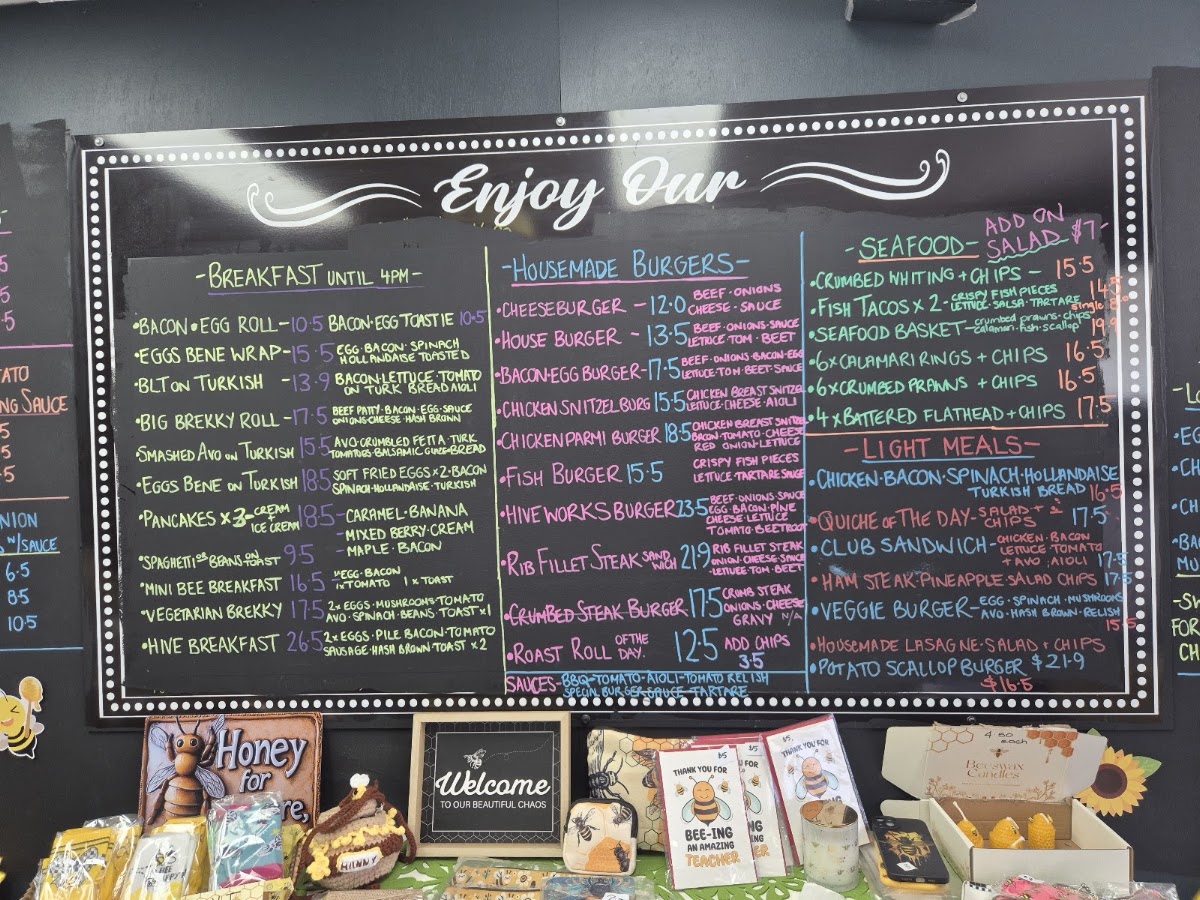 Enjoy Our
-BREAKFAST UNTIL 4PM-
•BACON•EGG ROLL-10·5 BACON·EGG TOASTIE 10·5
•EGGS BENE WRAP-15·5 EGG·BACON·SPINACH
HOLLANDAISE TOASTED
•BLT ON TURKISH -13·9 BACON·LETTUCE·TOMATO
ON TURK BREAD AIOLI
•BIG BREKKY ROLL-17·5 BEEF PATTY·BACON·EGG·SAUCE
ONIONS·CHEESE·HASH BROWN
•SMASHED AVO ON TURKISH 15·5 AVO·CRUMBLED FETTA·TURK
TOMATOES·BALSAMIC GLAZE·BREAD
•EGGS BENE ON TURKISH 18·5 SOFT FRIED EGGS x2·BACON
SPINACH·HOLLANDAISE·TURKISH
•PANCAKES x3-CREAM + ICE CREAM 18·5 -CARAMEL·BANANA
-MIXED BERRY·CREAM
-MAPLE·BACON
•SPAGHETTI OR BEANS ON TOAST 9·5
•MINI BEE BREAKFAST 16·5 1xEGG·BACON
1xTOMATO 1xTOAST
•VEGETARIAN BREKKY 17·5 2xEGGS·MUSHROOMS·TOMATO
AVO·SPINACH·BEANS·TOAST x1
•HIVE BREAKFAST 26·5 2xEGGS·PILE BACON·TOMATO
SAUSAGE·HASH BROWN·TOAST x2
-HOUSEMADE BURGERS-
•CHEESEBURGER -12·0 BEEF·ONIONS
CHEESE·SAUCE
•HOUSE BURGER -13·5 BEEF·ONIONS·SAUCE
LETTUCE·TOM·BEET
•BACON·EGG BURGER-17·5 BEEF·ONIONS·BACON·EGG
LETTUCE·TOM·BEET·SAUCE
•CHICKEN SNITZEL BURG 15·5 CHICKEN BREAST SNITZEL
LETTUCE·CHEESE·AIOLI
•CHICKEN PARMI BURGER 18·5 CHICKEN BREAST SNITZEL
BACON·TOMATO·CHEESE
RED ONION·LETTUCE
•FISH BURGER 15·5 CRISPY FISH PIECES
LETTUCE·TARTARE SAUCE
•HIVE WORKS BURGER 23·5 BEEF·ONIONS·SAUCE
EGG·BACON·PINE
CHEESE·LETTUCE
TOMATO·BEETROOT
•RIB FILLET STEAK SAND WICH 21·9 RIB FILLET STEAK
ONION·CHEESE·SAUCE
LETTUCE·TOM·BEET
•CRUMBED STEAK BURGER 17·5 CRUMB STEAK
ONIONS·CHEESE
GRAVY N/A
•ROAST ROLL OF THE DAY· 12·5 ADD CHIPS
3·5
SAUCES-BBQ-TOMATO-AIOLI-TOMATO RELISH
SPECIAL BURGER SAUCE-TARTARE
-SEAFOOD- ADD ON SALAD $7-
•CRUMBED WHITING + CHIPS - 15·5
•FISH TACOS x 2-CRISPY FISH PIECES 14·5
LETTUCE·SALSA·TARTARE single
•SEAFOOD BASKET-crumbed prawns·chips
calamari·fish·scallop 19·9
•6xCALAMARI RINGS + CHIPS 16·5
•6xCRUMBED PRAWNS + CHIPS 16·5
•4xBATTERED FLATHEAD+CHIPS 17·5
-LIGHT MEALS-
•CHICKEN·BACON·SPINACH·HOLLANDAISE
TURKISH BREAD 16·5
•QUICHE OF THE DAY-SALAD + CHIPS 17·5
•CLUB SANDWICH-CHICKEN·BACON
LETTUCE TOMATO
+ AVO, AIOLI 17·5
•HAM STEAK·PINEAPPLE·SALAD CHIPS 17·5
•VEGGIE BURGER-EGG·SPINACH·MUSHROOMS
AVO·HASH BROWN·RELISH
15·5
•HOUSEMADE LASAGNE·SALAD + CHIPS
•POTATO SCALLOP BURGER $21·9
$16·5
NG SAUCE
NION
W/SAUCE
6·5
8·5
10·5
Honey
for
Welcome
TO OUR BEAUTIFUL CHAOS
HUNNY
THANK YOU FOR
BEE-ING
AN AMAZING
TEACHER
THANK YOU FOR
4·50
each
Beeswax
Candles